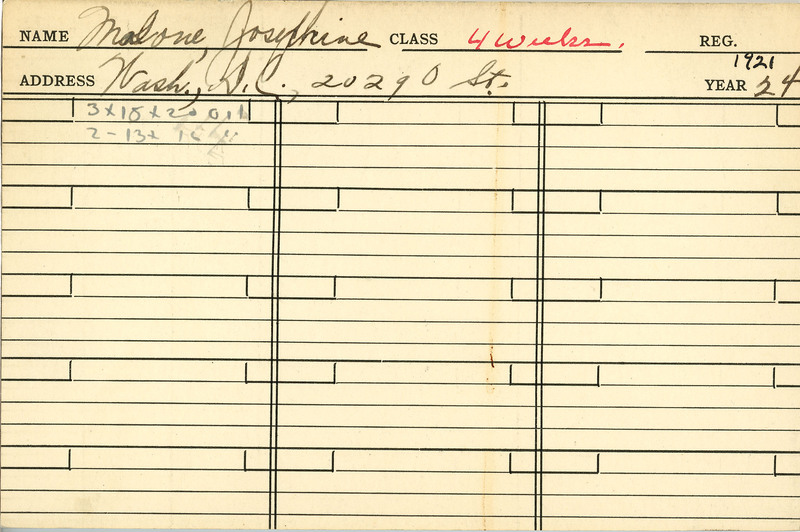 NAME Malone, Josephine CLASS 4 Weeks. REG.
ADDRESS Wash., D.C., 2029 O St. YEAR 1921 24
3 x 15 x 20 oil
2 - 13 x 16 "